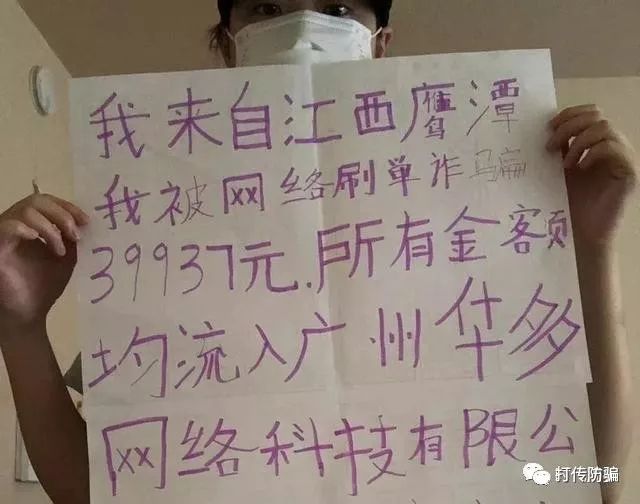 我来自江西鹰潭
我被网络刷单诈骗
39937元.所有金额
均流入广州华多
网络科技有限公
打传防骗